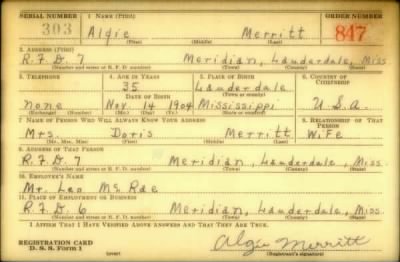 SERIAL NUMBER 1 NAME (Print) ORDER NUMBER
303 Algie Merritt 847
(First) (Middle) (Last)
2 ADDRESS (Print)
R.F.D. 7 Meridian, Lauderdale, Miss
(Number and street or R. F. D. number) (Town) (County) (State)
3 TELEPHONE 4 AGE IN YEARS 5 PLACE OF BIRTH 6 COUNTRY OF CITIZENSHIP
35 Lauderdale
DATE OF BIRTH (Town or county)
None Nov. 14 1904 Mississippi U.S.A.
(Exchange) (Number) (Mo.) (Day) (Yr.) (State or country)
7 NAME OF PERSON WHO WILL ALWAYS KNOW YOUR ADDRESS 8 RELATIONSHIP OF THAT PERSON
Mrs. Doris Merritt Wife
(Mr., Mrs., Miss) (First) (Middle) (Last)
9 ADDRESS OF THAT PERSON
R.F.D. 7 Meridian, Lauderdale, Miss.
(Number and street or R. F. D. number) (Town) (County) (State)
10 EMPLOYER'S NAME
Mr. Leo McRae
11 PLACE OF EMPLOYMENT OR BUSINESS
R.F.D. 6 Meridian, Lauderdale, Miss.
(Number and street or R. F. D. number) (Town) (County) (State)
I AFFIRM THAT I HAVE VERIFIED ABOVE ANSWERS AND THAT THEY ARE TRUE.
REGISTRATION CARD Algie Merritt
D. S. S. Form 1 (Registrant's signature)